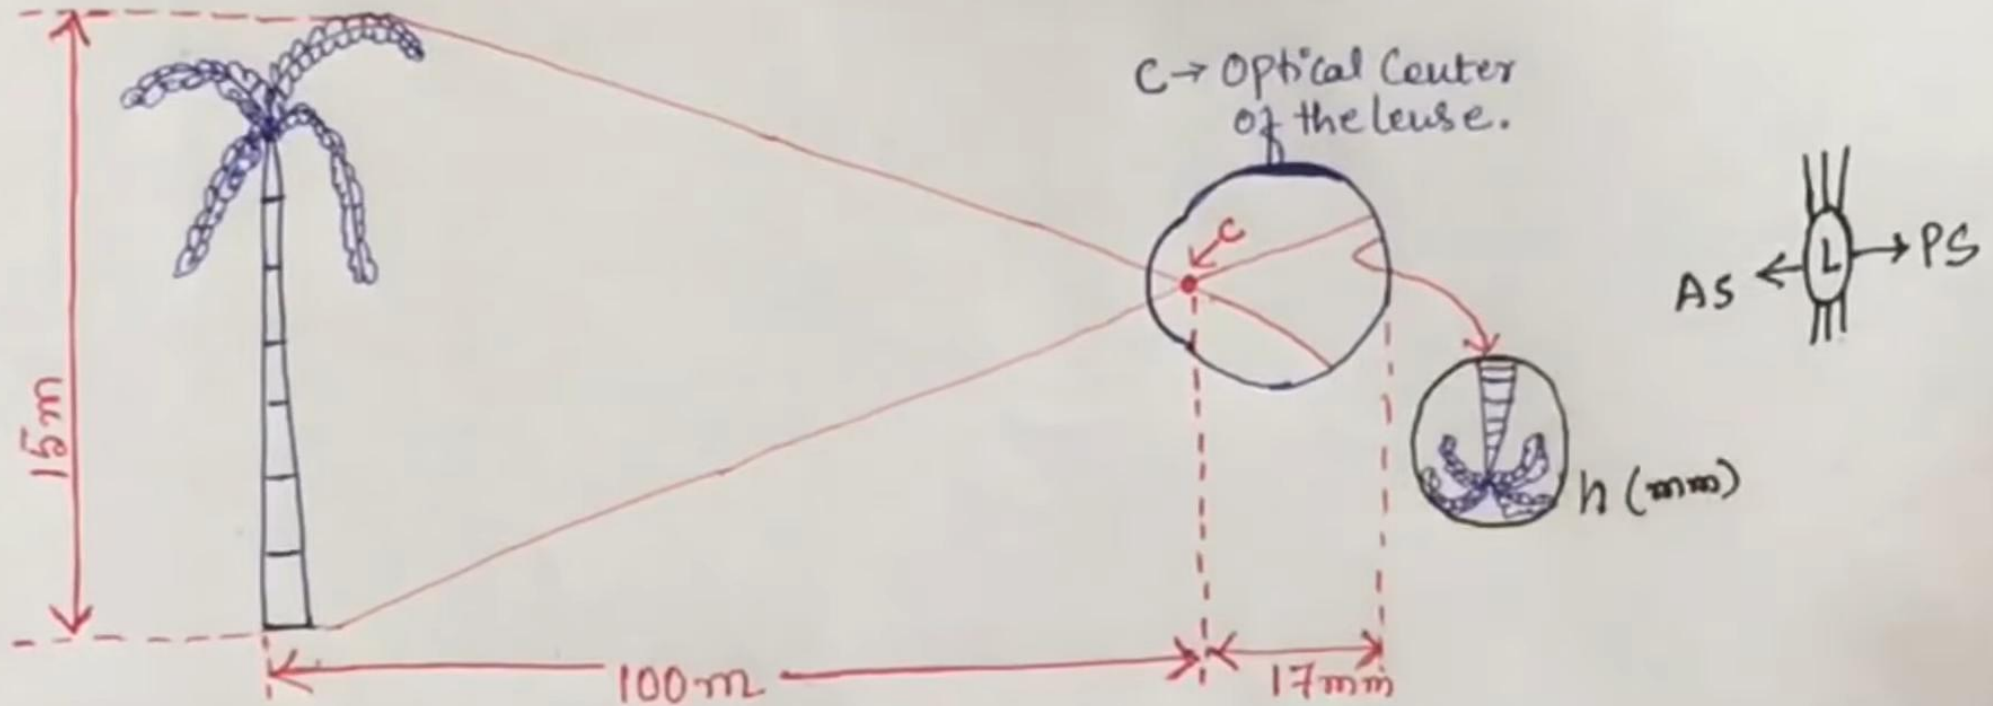 C→ Optical Center
of the lense.
C
L
As
PS
15m
h (mm)
100m
17mm